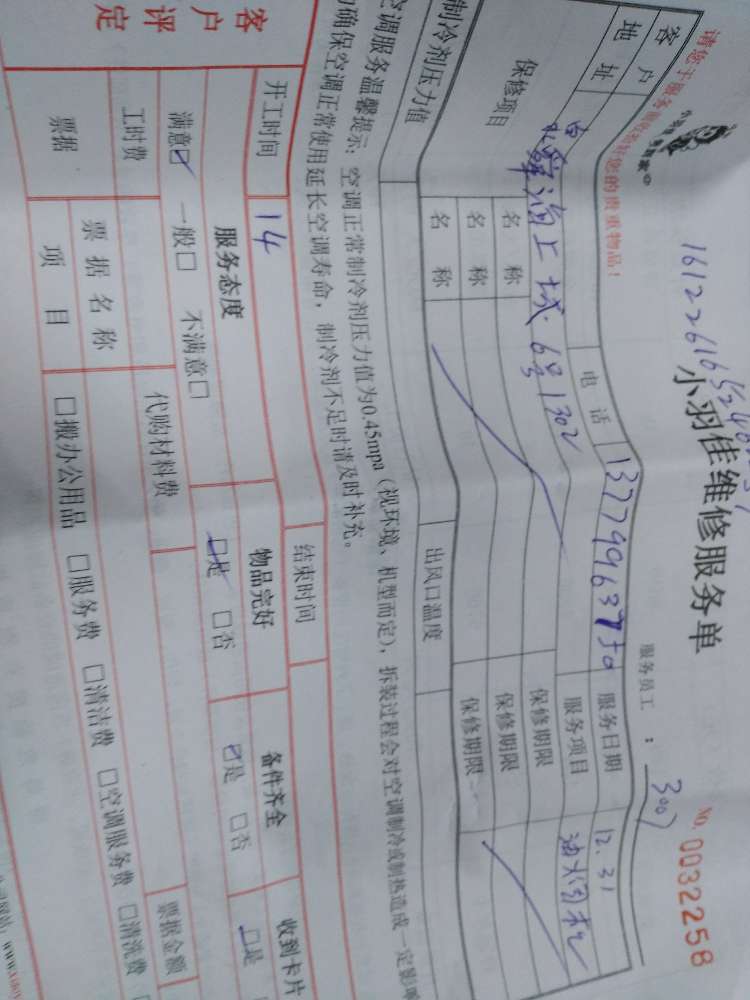 小羽佳维修服务单
NO. 0032258
服务员工：3007
请您于服务前收拾好您的贵重物品！
客户 电话 服务日期 12.31
地址 上城·6号1302 服务项目 油烟机
保修项目 名称 保修期限
名称 保修期限
名称 保修期限
制冷剂压力值 出风口温度
空调服务温馨提示：空调正常制冷剂压力值为0.45mpa（视环境、机型而定），拆装过程会对空调制冷或制热造成一定影响
确保空调正常使用延长空调寿命，制冷剂不足时请及时补充。
开工时间 14 结束时间
客户评定 服务态度 物品完好 备件齐全 收到卡片
满意☑ 一般□ 不满意□ ☑是 □否 ☑是 □否 ☑是
工时费 代购材料费
票据 票据名称 票据金额
项目 □搬办公用品 □服务费 □清洁费 □空调服务费 □清洗费